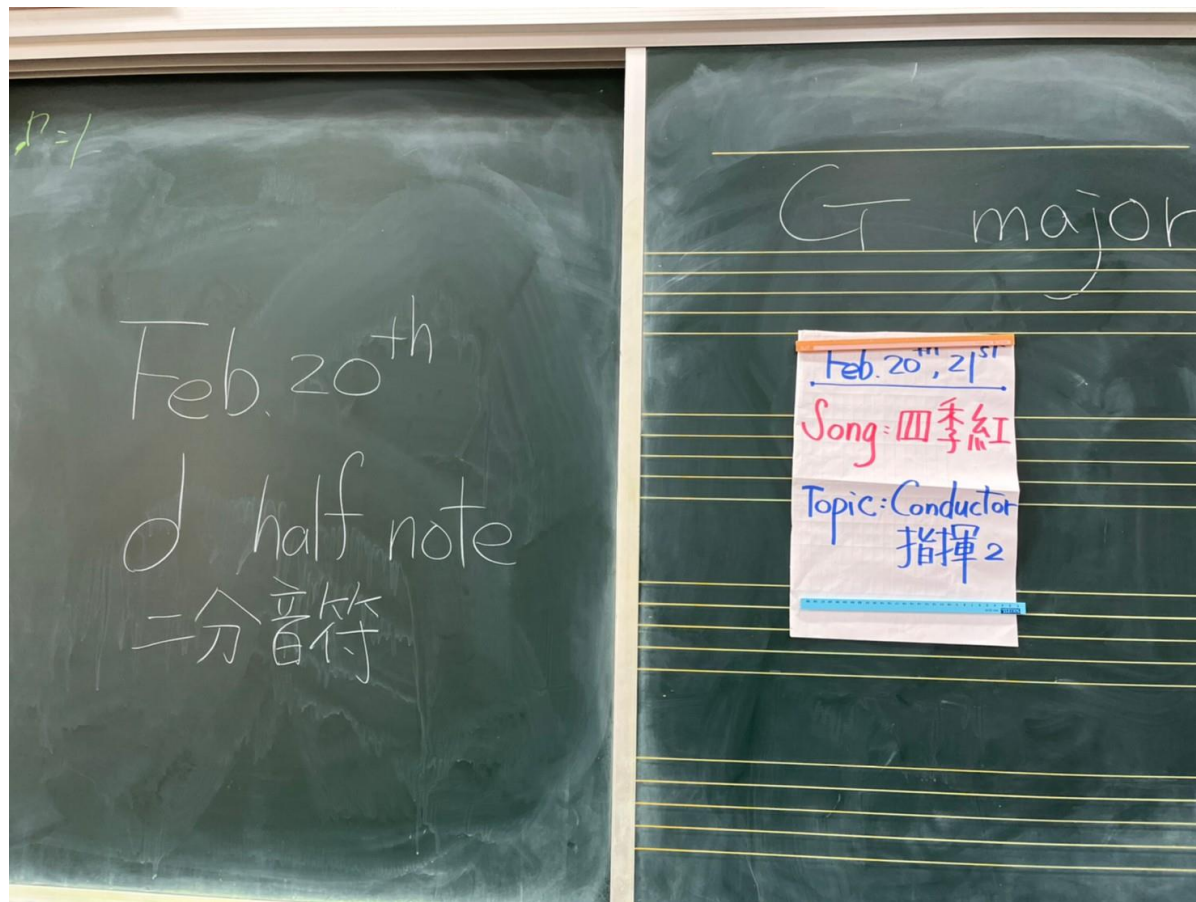 Feb. 20th
d half note
二分音符
G major
Feb. 20th, 21st
Song: 四季紅
Topic: Conductor
指揮 2